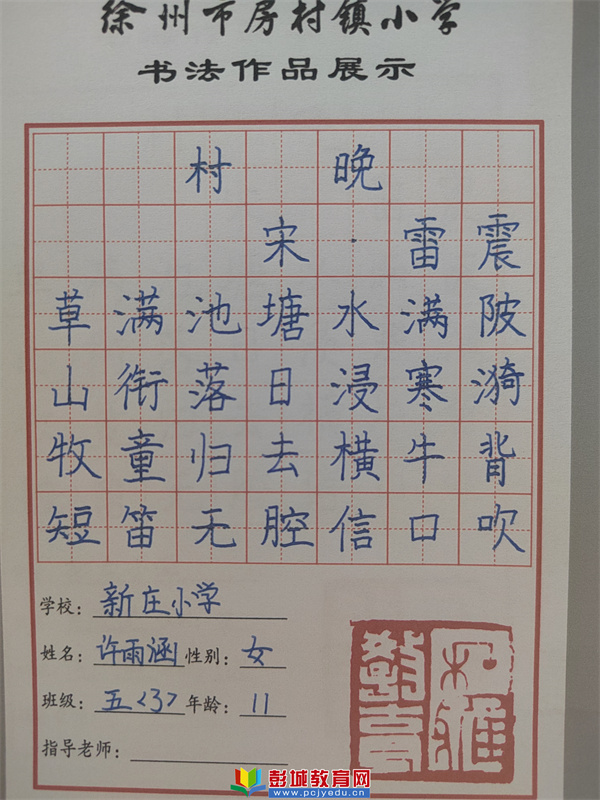 徐州市房村镇小学
书法作品展示
村 晚
宋·雷震
草满池塘水满陂
山衔落日浸寒漪
牧童归去横牛背
短笛无腔信口吹
学校：新庄小学
姓名：许雨涵 性别：女
班级：五<3> 年龄：11
指导老师：
彭城教育网
www.pcjyedu.cn